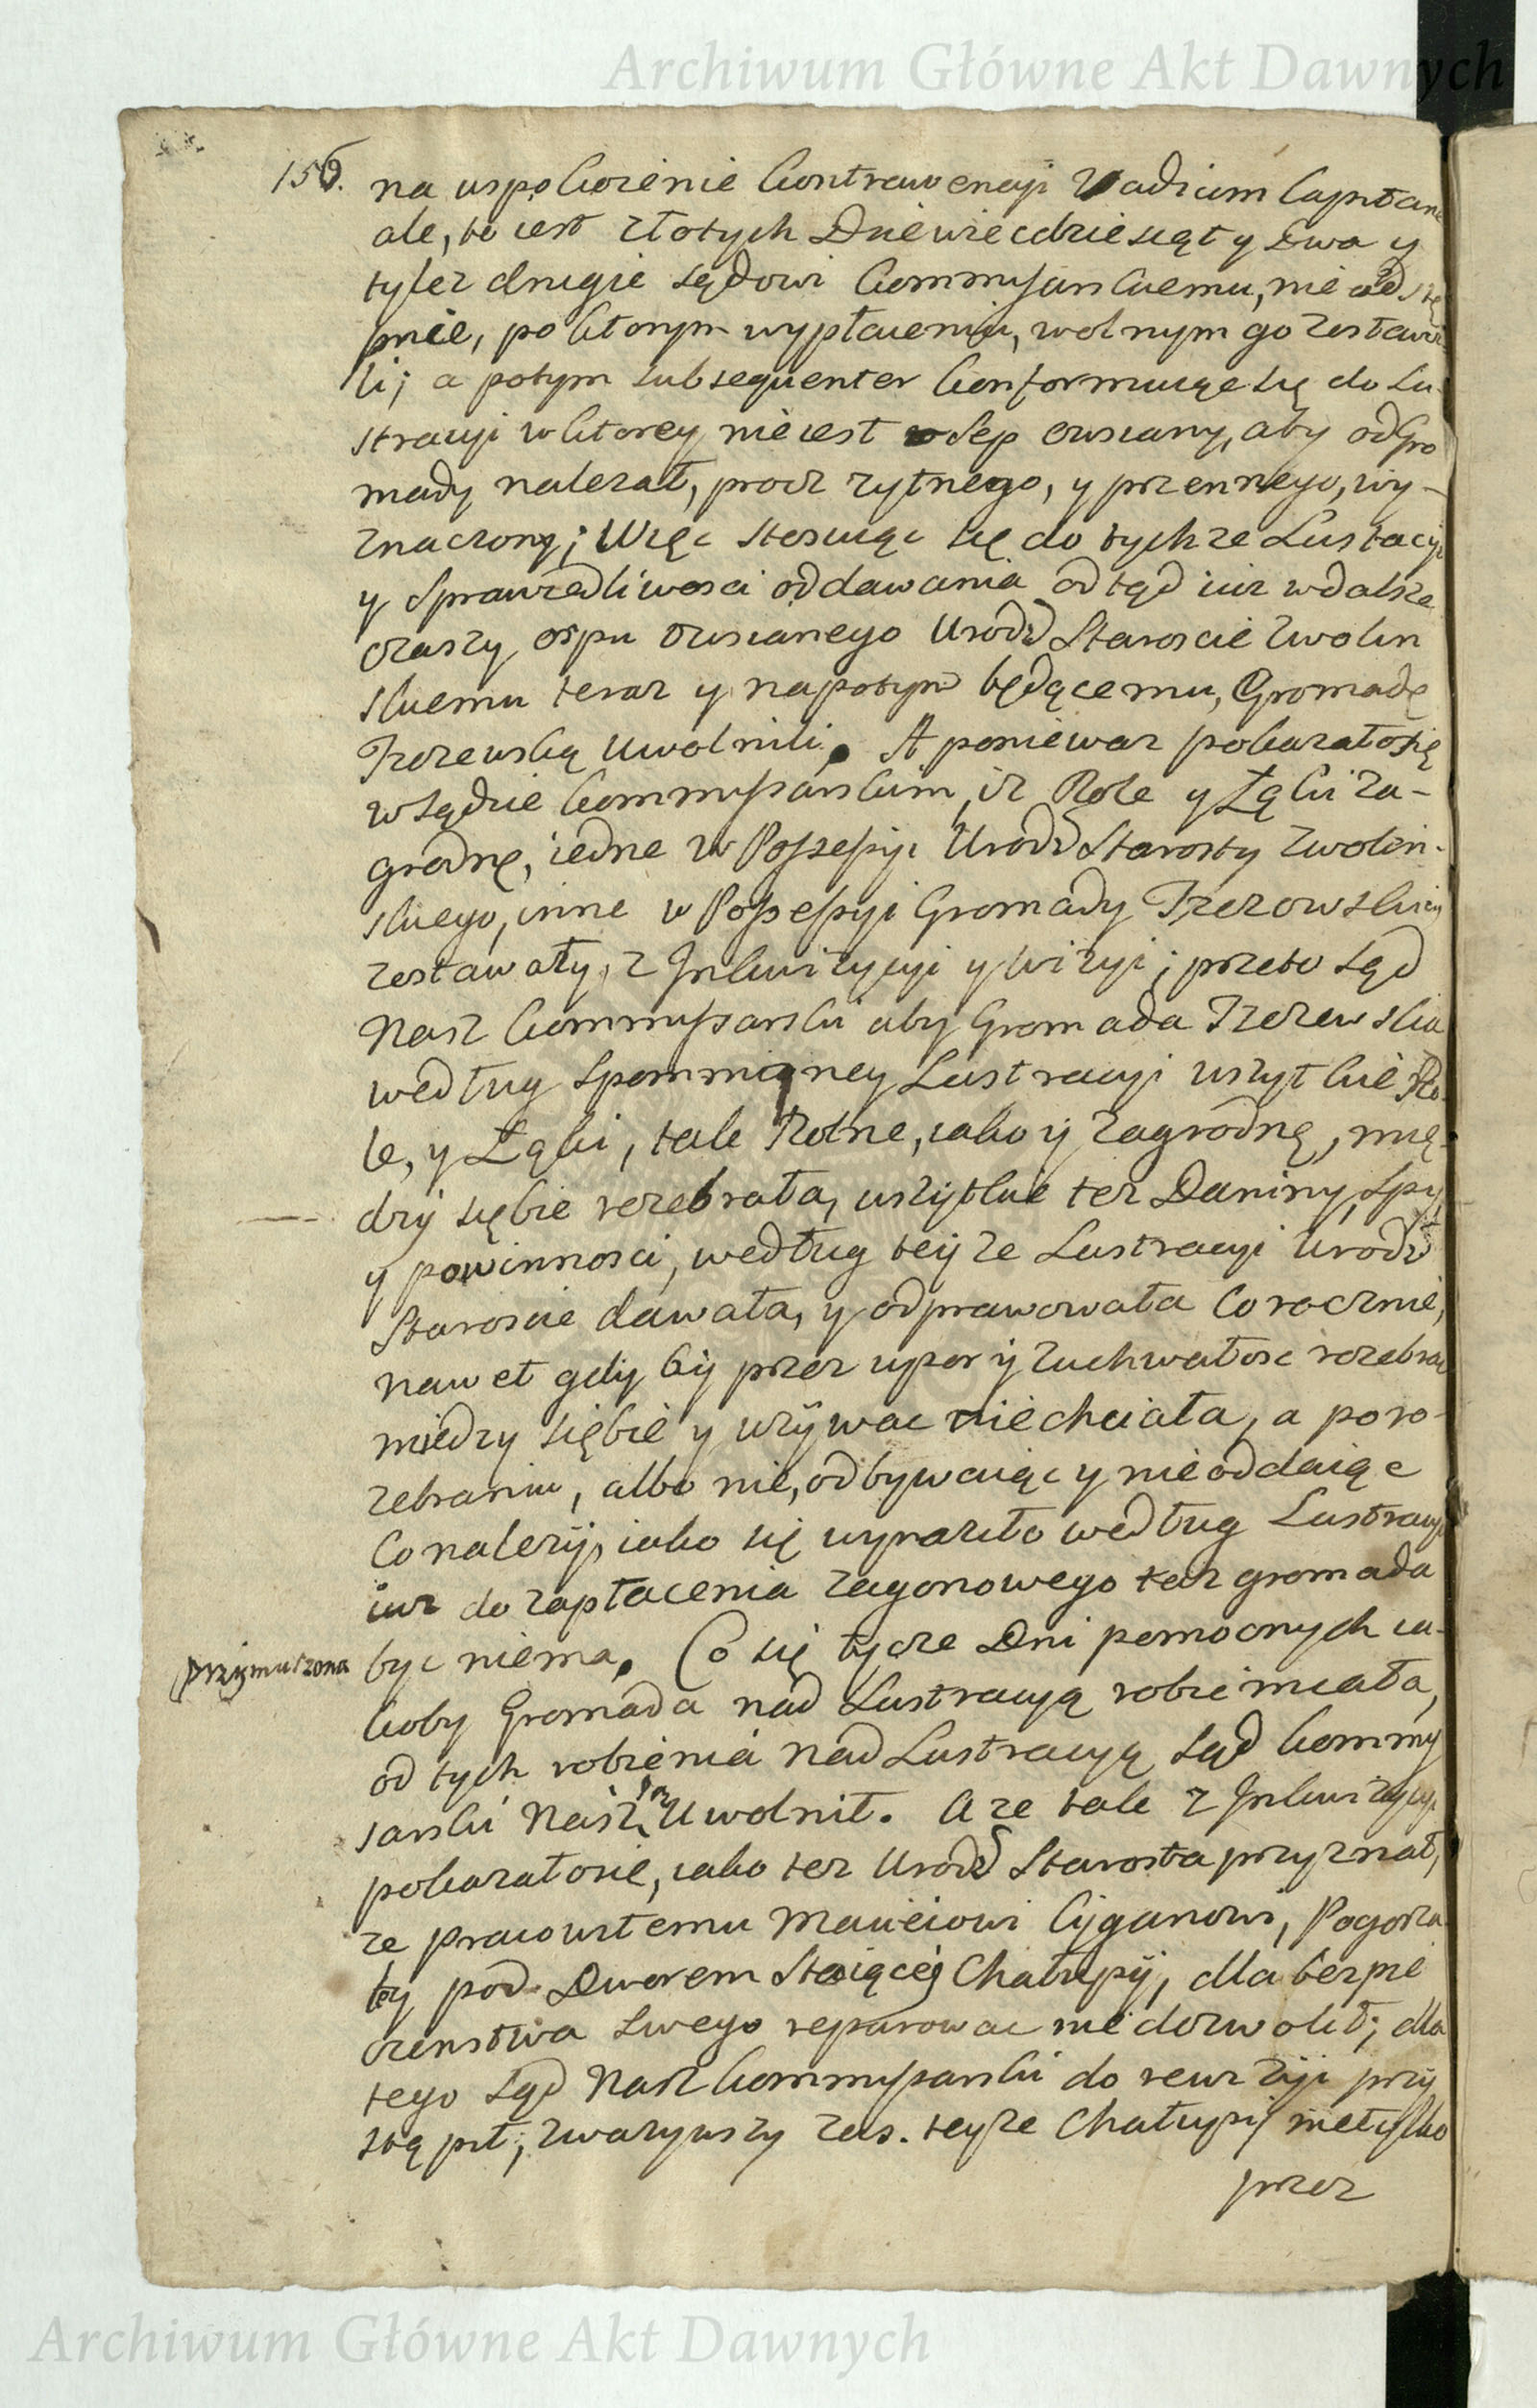 Archiwum Główne Akt Dawnych
156. na uspokoienie kontrawencyi Vadium Capitane
ale, to iest złotych Dziewięcdziesiąt y Dwa y
tylez drugie sądowi kommissarskiemu, nie odstę
pnie, po ktorym wypłaceniu, wolnym go zostawi-
li; a potym subsequenter konformuiąc się do Lu-
stracyi w ktorey nie iest Sep owsiany, aby od Gro
mady nalezał, procz zytnego, y przennego, wy-
znaczony; Więc stosuiąc się do tychze Lustacyi
y Sprawiedliwosci oddawania odtąd iuz w dalsze
czaszy ospu owsianego Urodz Staroscie Zwolin
skiemu teraz y napotym będącemu, Gromadę
Trzezewską Uwolnili. A poniewaz pokazałosię
w sądzie kommyssarskim, iz Role y Łąki za-
grodnę, iedne w Possessyi Urodz Starosty Zwolin-
skiego, inne w Possessyi Gromady Trzezowskiey
zostawały, z Jnkwizycyi y wizyi; przeto Sąd
Nasz kommyssarski aby Gromada Trzezewska
według Spommiąney Lustracyi uszytkie Ro-
le, y Łąki, tak Rolne, iako y zagrodnę, mię-
dzy siębie rozebrała, uszytkie tez Daniny, Spy,
y powinnosci, według teyze Lustracyi Urodz
Staroscie dawała, y odprawowała Corocznie,
nawet gdyby przez upor y zuchwałosc rozebrac
miedzy siębie y uzywac niechciała, a poro-
zebraniu, albo nie, odbywaiąc y nie oddaiąc
Co nalezy, iako się wyraziło według Lustracyi
iuz do zapłacenia zagonowego taz gromada
przymuszona
byc niema. Co się tycze Dni pomocnych ia-
koby Gromada nad Lustracyą robic miała,
od tych robienia nad Lustracyą Sąd kommy
sarski Nasz Uwolnił. A ze tak z Jnkwizycyi
pokazałosie, iako tez Urodz Starosta przyznał,
ze pracowitemu Maciеiowi Cyganowi, Pogorza
ły pod Dworem Stoiącey Chałupy, dla bezpie
czenstwa swego reparowac nie dozwolił; dla
tego Sąd Nasz kommyssarski do rewizyi przy
stąpił; zwazywszy zas. teyze Chałupy nietylko
przez
Archiwum Główne Akt Dawnych